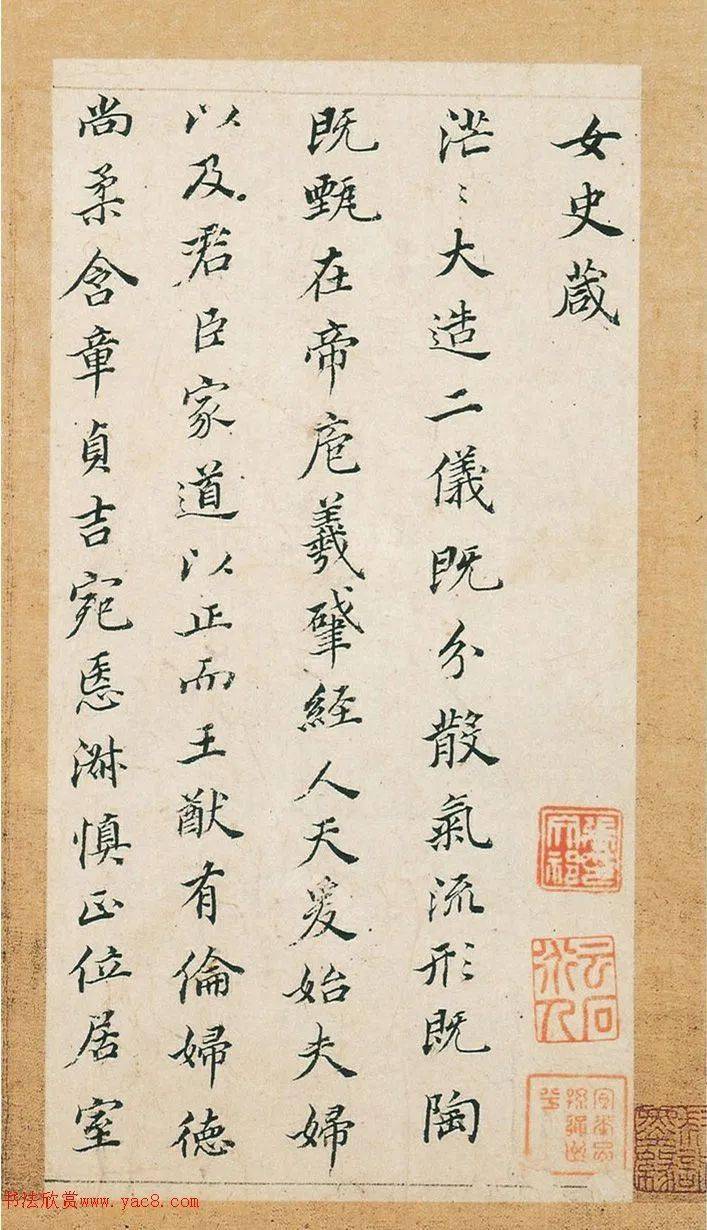 女史葴
茫〻大造二儀既分散氣流形既陶
既甄在帝庖羲肇經人天爰始夫婦
以及君臣家道以正而王猷有倫婦德
尚柔含章貞吉宛淑慎正位居室
书法欣赏www.yac8.com